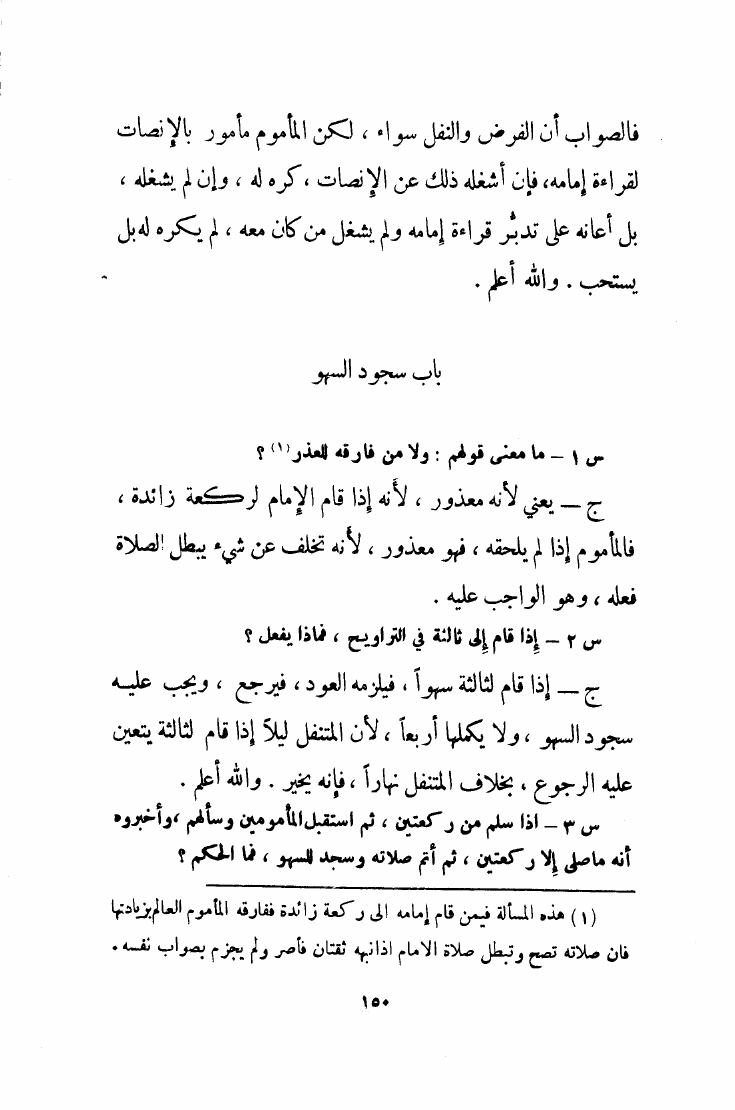 فالصواب أن الفرض والنفل سواء ، لكن المأموم مأمور بالإنصات
لقراءة إمامه، فإن أشغله ذلك عن الإنصات ، كره له ، وإن لم يشغله ،
بل أعانه على تدبُّر قراءة إمامه ولم يشغل من كان معه ، لم يكره له بل
يستحب . والله أعلم .
باب سجود السهو
س ١ – ما معنى قولهم : ولا من فارقه للعذر (١) ؟
ج – يعني لأنه معذور ، لأنه إذا قام الإمام لركعة زائدة ،
فالمأموم إذا لم يلحقه ، فهو معذور ، لأنه تخلف عن شيء يبطل الصلاة
فعله ، وهو الواجب عليه .
س ٢ – إذا قام إلى ثالثة في التراويح ، فماذا يفعل ؟
ج – إذا قام لثالثة سهواً ، فيلزمه العود ، فيرجع ، ويجب عليه
سجود السهو ، ولا يكملها أربعاً ، لأن المتنفل ليلاً إذا قام لثالثة يتعين
عليه الرجوع ، بخلاف المتنفل نهاراً ، فإنه يخير . والله أعلم .
س ٣ – اذا سلم من ركعتين ، ثم استقبل المأمومين وسألهم ، وأخبروه
أنه ماصلى إلا ركعتين ، ثم أتم صلاته وسجد للسهو ، فما الحكم ؟
(١) هذه المسألة فيمن قام إمامه الى ركعة زائدة ففارقه المأموم العالم بزيادتها
فان صلاته تصح وتبطل صلاة الامام اذا نبهه ثقتان فأصر ولم يجزم بصواب نفسه .
١٥٠